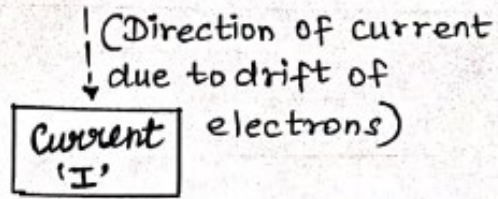 (Direction of current
due to drift of
electrons)
Current
'I'